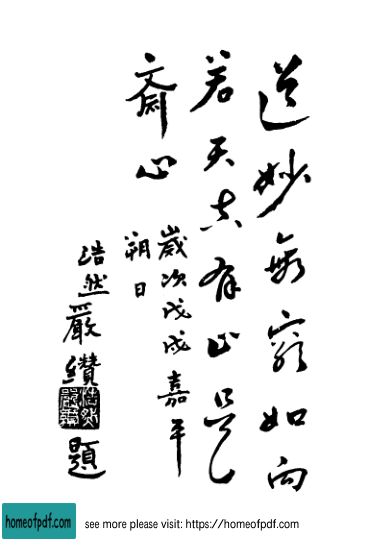 道妙無窮如向
若天真有止是
齋心
歲次戊戌嘉平
朔日
浩然嚴纘題
homeofpdf.com
see more please visit: https://homeofpdf.com